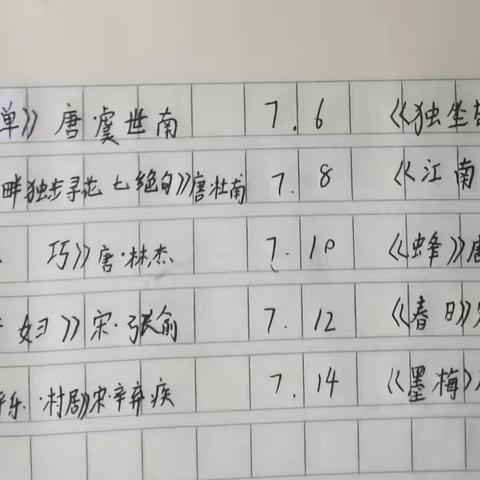 单》唐·虞世南 7.6 《独坐
畔独步寻花七绝句》唐杜南 7.8 《江南
巧》唐·林杰 7.10 《蜂》唐
妇》宋·张俞 7.12 《春日》
乐·村居》宋·辛弃疾 7.14 《墨梅》